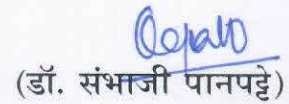 (डॉ. संभाजी पानपट्टे)